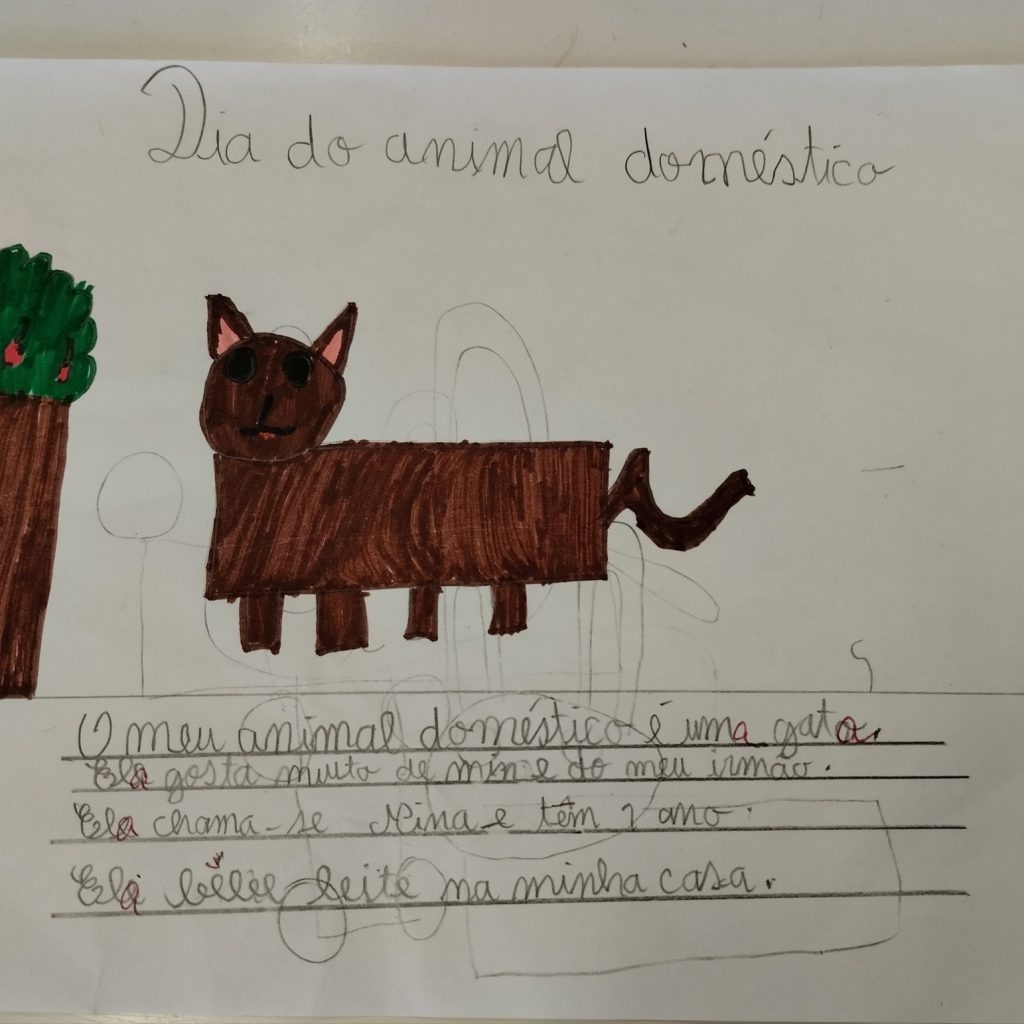 Dia do animal doméstico
O meu animal doméstico é uma gata.
Ela gosta muito de min e do meu irmão.
Ela chama-se Nina e têm 1 ano.
Ela leite na minha casa.